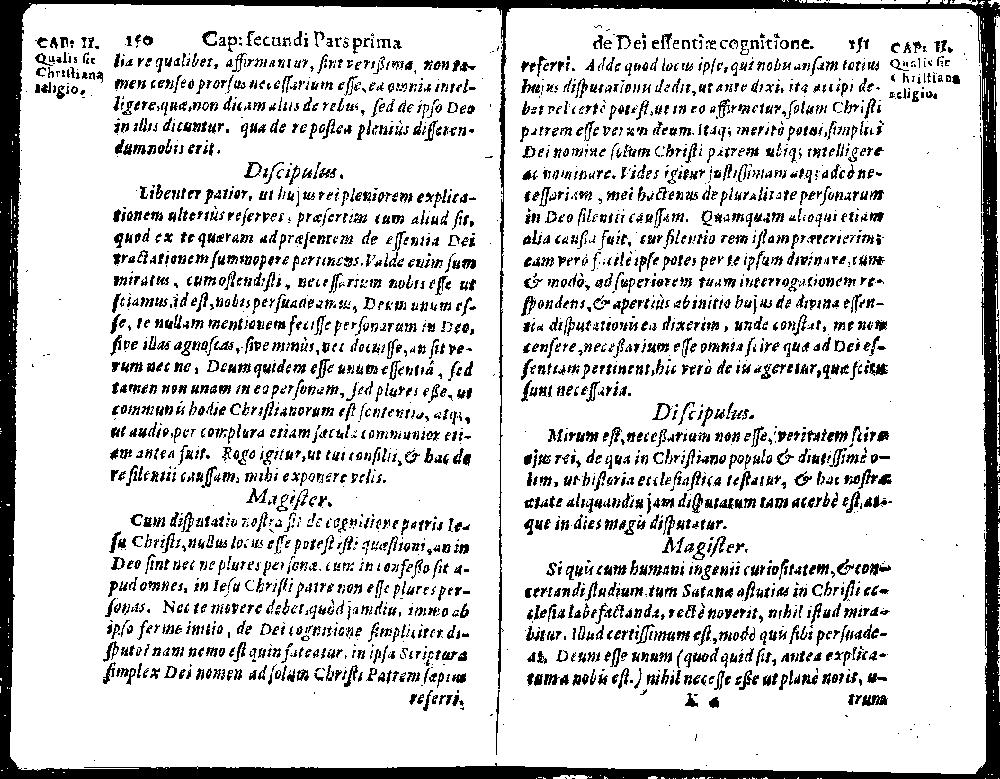 CAP: II.
Qualis sit
Christiana
religio.
150 Cap: secundi Pars prima
lia re qualibet, affirmantur, sint verißima, non ta-
men censeo prorsus necessarium esse, ea omnia intel-
ligere, quæ, non dicam aliis de rebus, sed de ipso Deo
in illis dicuntur. qua de re postea plenius disseren-
dum nobis erit.
Discipulus.
Libenter patior, ut hujus rei pleniorem explica-
tionem ulterius reserves, præsertim cum aliud sit,
quod ex te quæram ad præsentem de essentia Dei
tractationem summopere pertinens. Valde enim sum
miratus, cum ostendisti, necessarium nobis esse ut
sciamus, id est, nobis persuadeamus, Deum unum es-
se, te nullam mentionem fecisse personarum in Deo,
sive illas agnoscas, sive minùs, nec docuisse, an sit ve-
rum nec ne, Deum quidem esse unum essentiâ, sed
tamen non unam in eo personam, sed plures eße, ut
communis hodie Christianorum est sententia, atq;,
ut audio, per complura etiam sæcula communior eti-
am antea fuit. Rogo igitur, ut tui consilii, & hac de
re silentii caussam, mihi exponere velis.
Magister.
Cum disputatio nostra sit de cognitione patris Ie-
su Christi, nullus locus esse potest isti quæstioni, an in
Deo sint nec ne plures personæ. cum in confesso sit a-
pud omnes, in Iesu Christi patre non esse plures per-
sonas. Nec te movere debet, quòd jamdiu, immo ab
ipso ferme initio, de Dei cognitione simpliciter di-
sputo: nam nemo est quin fateatur, in ipsa Scriptura
simplex Dei nomen ad solum Christi Patrem sæpius
referri.
de Dei essentiæ cognitione. 151
CAP: II.
Qualis sit
Christiana
religio.
referri. Adde quod locus ipse, qui nobis ansam totius
hujus disputationis dedit, ut ante dixi, ita accipi de-
bet vel certè potest, ut in eo affirmetur, solum Christi
patrem esse verum deum. Itaq; meritò potui, simplici
Dei nomine solum Christi patrem ubiq; intelligere
ac nominare. Vides igitur justissimam atq; adeò ne-
cessariam, mei hactenus de pluralitate personarum
in Deo silentii caussam. Quamquam alioqui etiam
alia causa fuit, cur silentio rem istam præterierim;
eam verò facile ipse potes per te ipsum divinare, cum
& modò, ad superiorem tuam interrogationem re-
spondens, & apertiùs ab initio hujus de divina essen-
tia disputationis ea dixerim, unde constat, me non
censere, necessarium esse omnia scire quæ ad Dei es-
sentiam pertinent, hic verò de iis ageretur, quæ scitu
sunt necessaria.
Discipulus.
Mirum est, necessarium non esse, veritatem scire
ejus rei, de qua in Christiano populo & diutissimè o-
lim, ut historia ecclesiastica testatur, & hac nostra
ætate aliquandiu jam disputatum tam acerbè est, at-
que in dies magis disputatur.
Magister.
Si quis cum humani ingenii curiositatem, & con-
certandi studium, tum Satanæ astutias in Christi ec-
clesia labefactanda, rectè noverit, nihil istud mira-
bitur. Illud certissimum est, modò quis sibi persuade-
at, Deum esse unum (quod quid sit, antea explica-
tum a nobis est.) nihil necesse eße ut planè norit, u-
K 4 trum